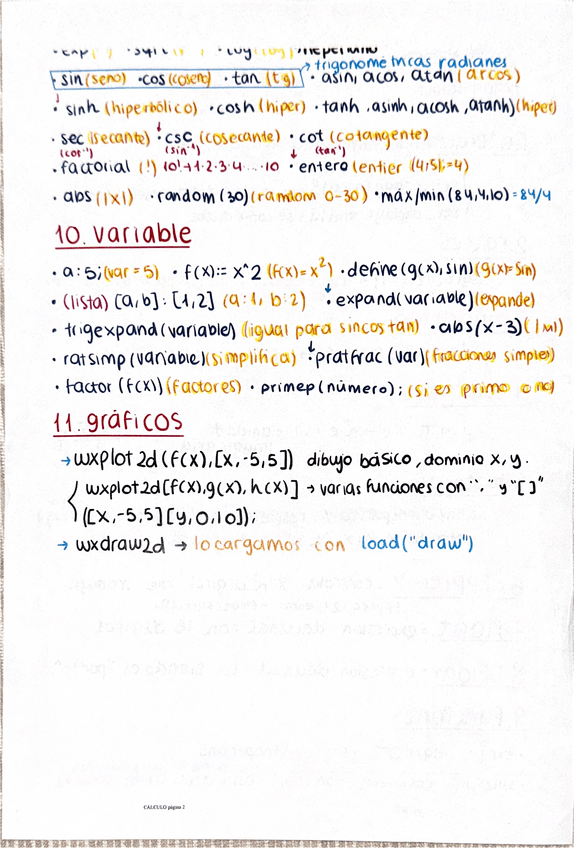 neperiano
→trigonométricas radianes
·sin(seno) ·cos(coseno) ·tan(tg) ·asin, acos, atan(arcos)
·sinh(hiperbólico) ·cosh(hiper) ·tanh, asinh, acosh, atanh)(hiper)
·sec(secante) ·csc(cosecante) ·cot(cotangente)
(cos⁻¹) (sin⁻¹) (tan⁻¹)
·factorial(!) 10!→1·2·3·4....·10 ·entero(entier (4,5)=4)
·abs(|x|) ·random(30)(random 0-30) ·máx/min(84,4,10)=84/4
10. variable
·a:5;(var=5) ·f(x):=x^2 (f(x)=x²) ·define(g(x),sin)(g(x)=sin)
·(lista) [a,b]:[1,2] (a:1, b:2) ·expand(variable)(expande)
·trigexpand(variable)(igual para sin cos tan) ·abs(x-3)(|x|)
·ratsimp(variable)(simplifica) ·partfrac(var)(fracciones simples)
·factor(f(x))(factores) ·primep(número);(si es primo o no)
11. gráficos
→wxplot2d(f(x),[x,-5,5]) dibujo básico, dominio x, y.
wxplot2d[f(x),g(x),h(x)] → varias funciones con "," y "[]"
([x,-5,5][y,0,10]);
→ wxdraw2d → lo cargamos con load("draw")
CÁLCULO página 2